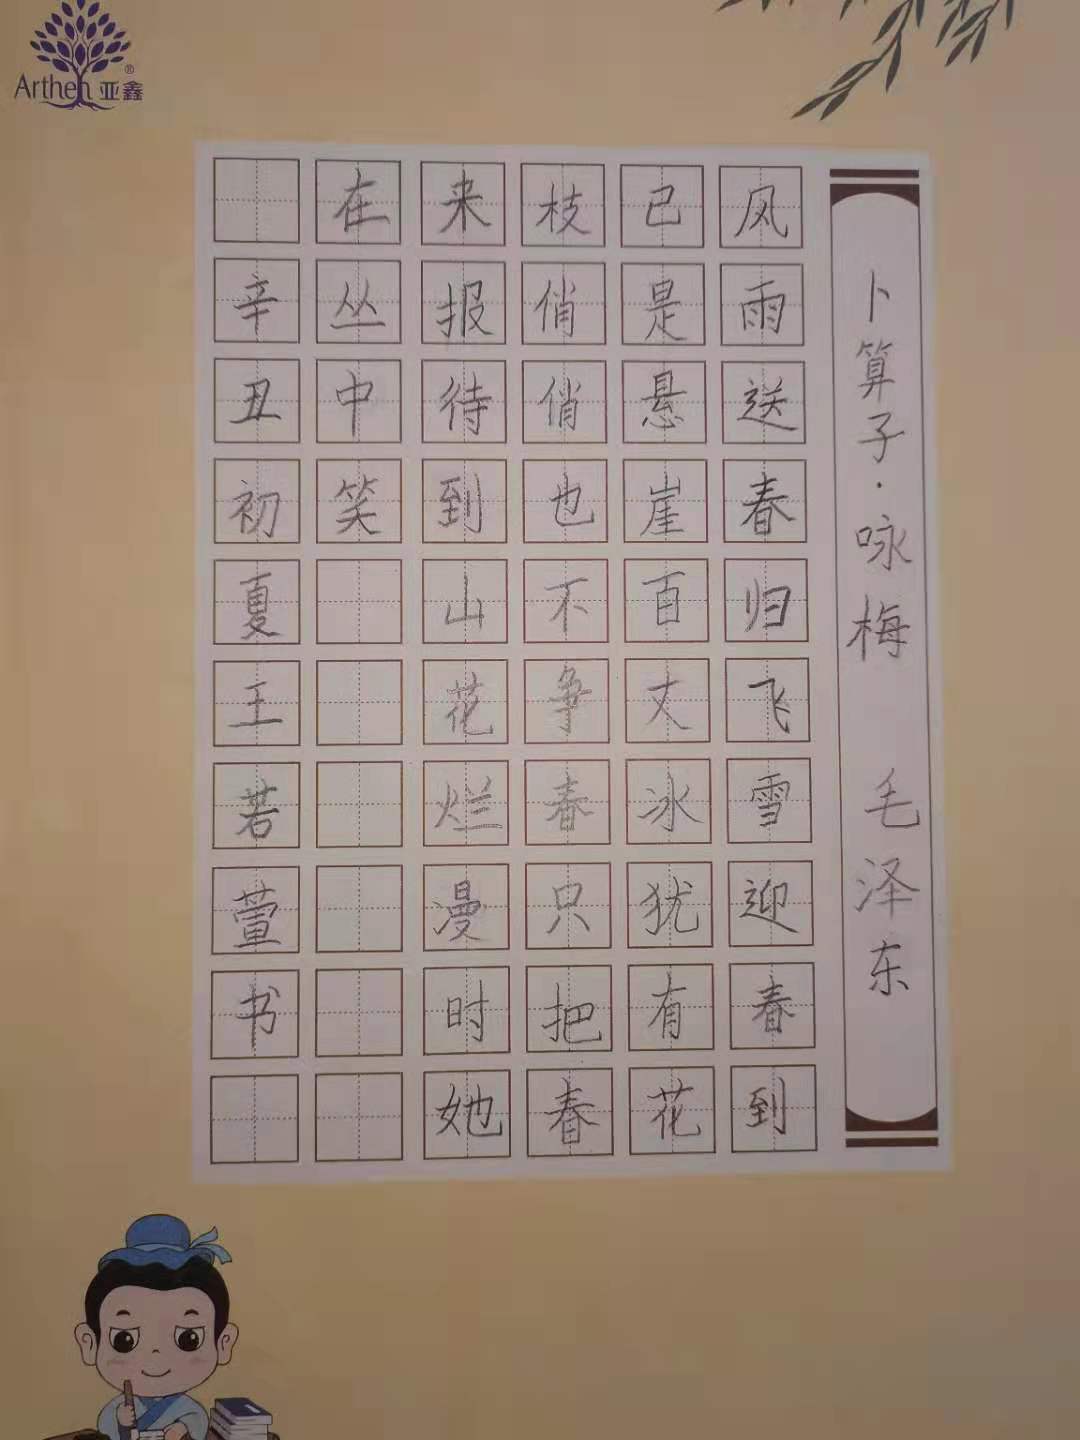 Arthen 亚鑫®
卜算子·咏梅 毛泽东
风雨送春归飞雪迎春到
已是悬崖百丈冰犹有花
枝俏俏也不争春只把春
来报待到山花烂漫时她
在丛中笑
辛丑初夏王若萱书